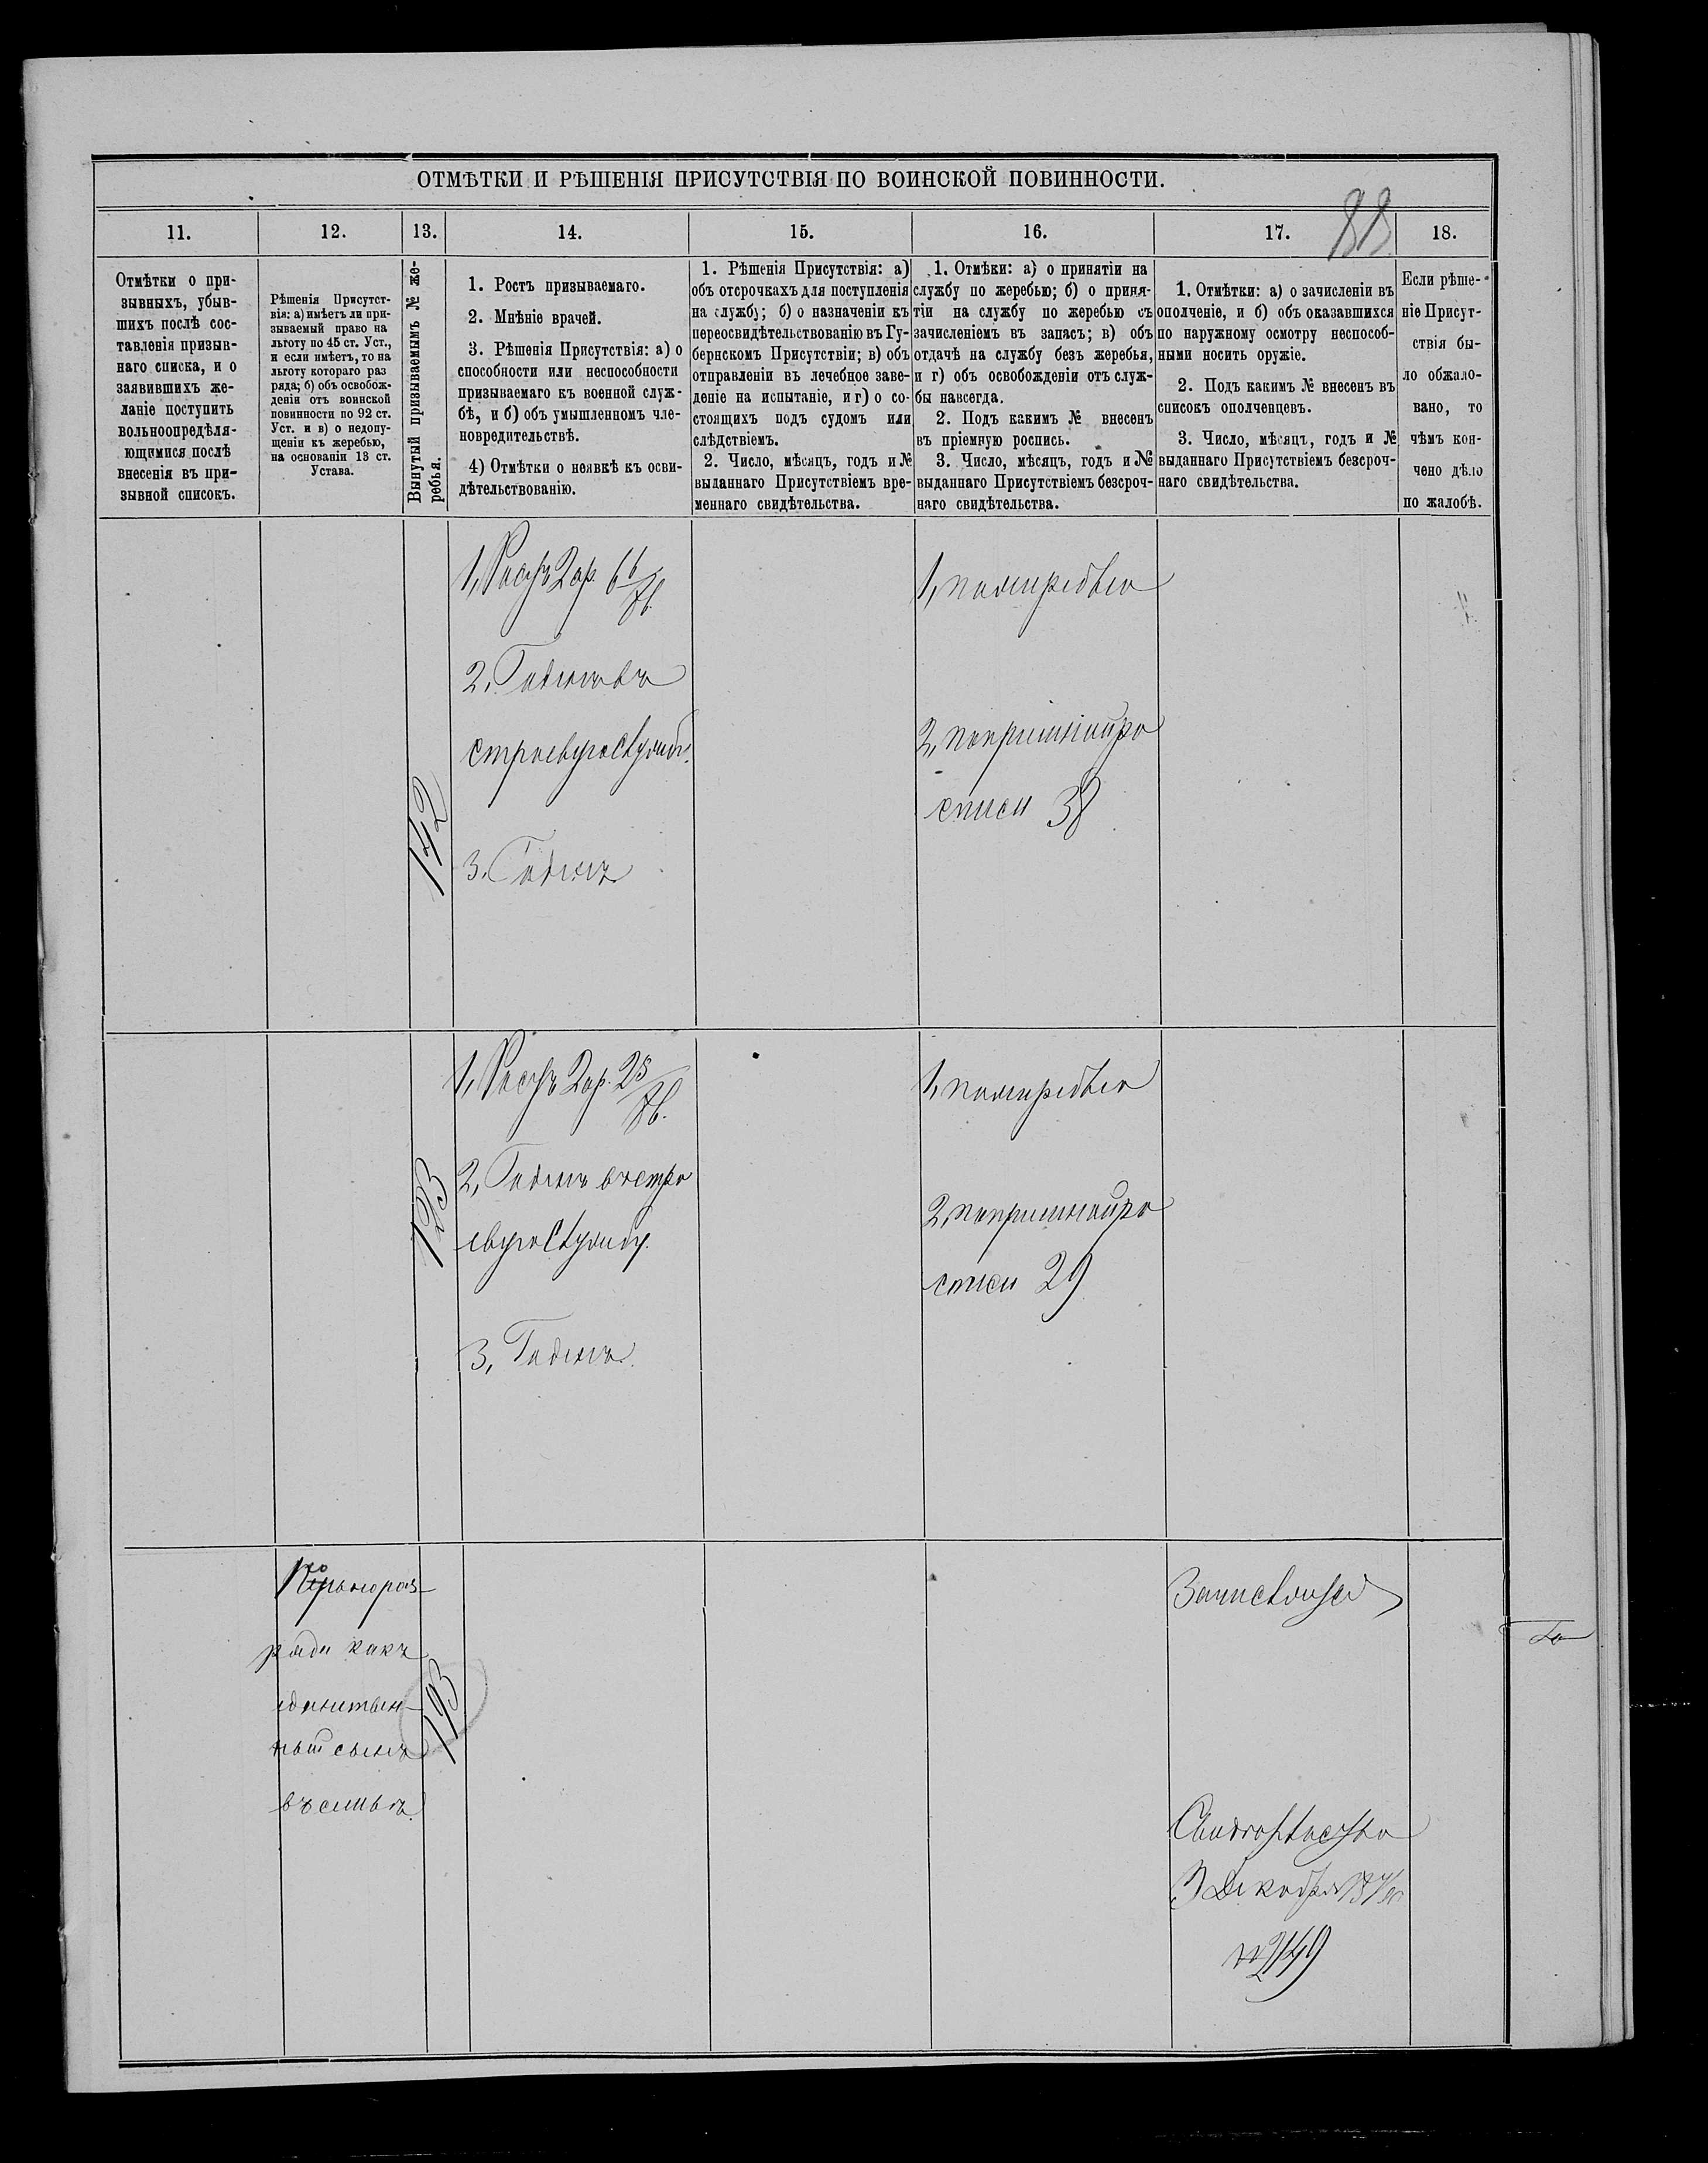 ОТМѢТКИ И РѢШЕНІЯ ПРИСУТСТВІЯ ПО ВОИНСКОЙ ПОВИННОСТИ.
88
11.
12.
13.
14.
15.
16.
17.
18.
Отмѣтки о при-
зывныхъ, убыв-
шихъ послѣ сос-
тавленія призыв-
наго списка, и о
заявившихъ же-
ланіе поступить
вольноопредѣля-
ющимися послѣ
внесенія въ при-
зывной списокъ.
Рѣшенія Присутст-
вія: а) имѣетъ ли при-
зываемый право на
льготу по 45 ст. Уст.,
и если имѣетъ, то на
льготу котораго раз
ряда; б) объ освобож-
деніи отъ воинской
повинности по 92 ст.
Уст. и в) о недопу-
щеніи къ жеребью,
на основаніи 13 ст.
Устава.
Вынутый призываемымъ № же-
ребья.
1. Ростъ призываемаго.
2. Мнѣніе врачей.
3. Рѣшенія Присутствія: а) о
способности или неспособности
призываемаго къ военной служ-
бѣ, и б) объ умышленномъ чле-
новредительствѣ.
4) Отмѣтки о неявкѣ къ осви-
дѣтельствованію.
1. Рѣшенія Присутствія: а)
объ отсрочкахъ для поступленія
на службу; б) о назначеніи къ
переосвидѣтельствованію въ Гу-
бернскомъ Присутствіи; в) объ
отправленіи въ лечебное заве-
деніе на испытаніе, и г) о со-
стоящихъ подъ судомъ или
слѣдствіемъ.
2. Число, мѣсяцъ, годъ и №
выданнаго Присутствіемъ вре-
меннаго свидѣтельства.
1. Отмѣки: а) о принятіи на
службу по жеребью; б) о приня-
тіи на службу по жеребью съ
зачисленіемъ въ запасъ; в) объ
отдачѣ на службу безъ жеребья,
и г) объ освобожденіи отъ служ-
бы навсегда.
2. Подъ какимъ № внесенъ
въ пріемную роспись.
3. Число, мѣсяцъ, годъ и №
выданнаго Присутствіемъ безсроч-
наго свидѣтельства.
1. Отмѣтки: а) о зачисленіи въ
ополченіе, и б) объ оказавшихся
по наружному осмотру неспособ-
ными носить оружіе.
2. Подъ какимъ № внесенъ въ
списокъ ополченцевъ.
3. Число, мѣсяцъ, годъ и №
выданнаго Присутствіемъ безсроч-
наго свидѣтельства.
Если рѣше-
ніе Присут-
ствія бы-
ло обжало-
вано, то
чѣмъ кон-
чено дѣло
по жалобѣ.
142
1, Ростъ 2 ар. 6 6/8 в.
2. Годенъ въ
строевую службу.
3. Годенъ
1, по жеребью
2, по пріемной ро
списи 38
123
1, Ростъ 2 ар. 2 5/8 в.
2, Годенъ въ стро
евую службу.
3, Годенъ.
1, по жеребью
2, по пріемной ро
списи 29
ряда какъ
единствен-
ный сынъ
въ семьѣ.
193
Свидѣтельство
3 Декабря
№ 2149